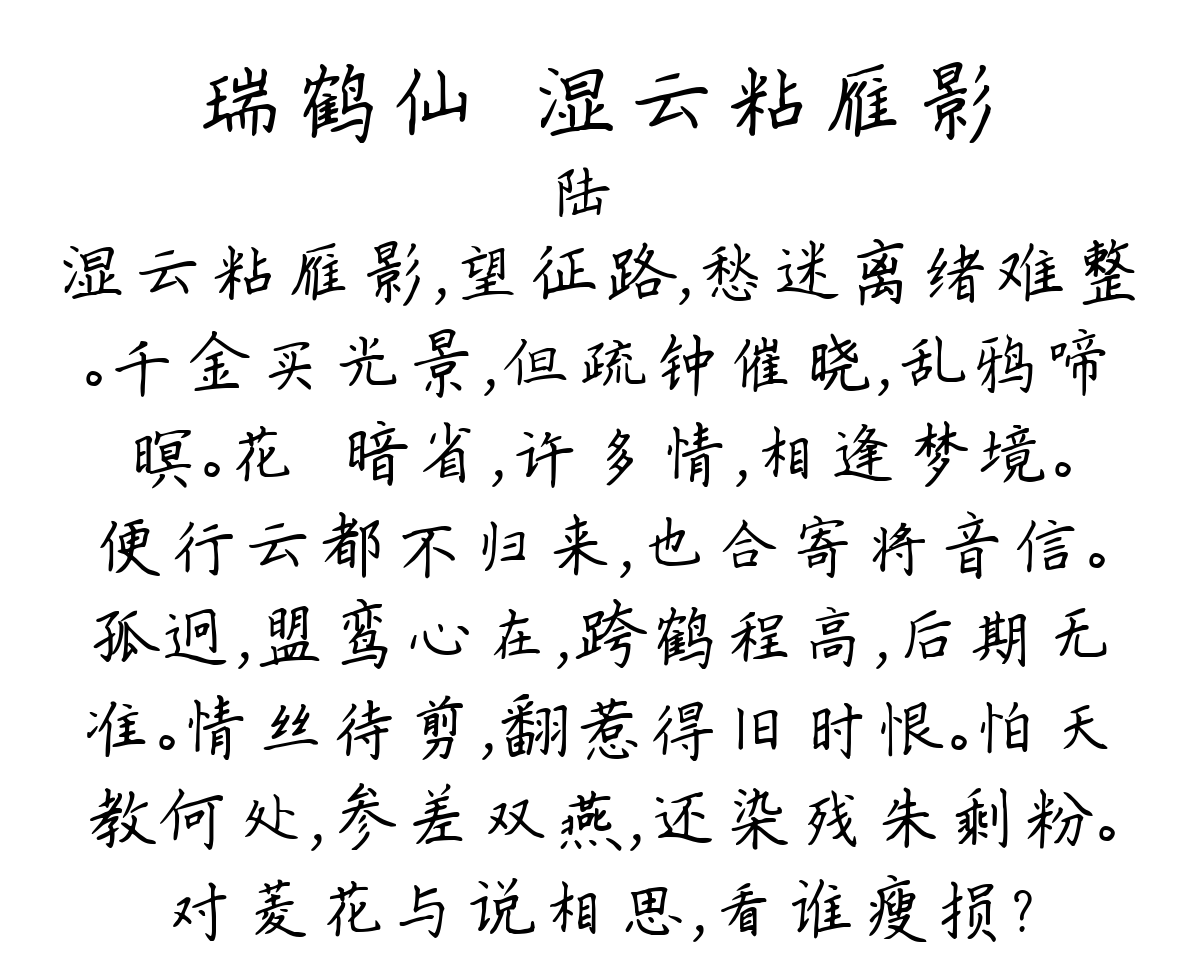 瑞鹤仙 湿云粘雁影
陆
湿云粘雁影,望征路,愁迷离绪难整
。千金买光景,但疏钟催晓,乱鸦啼
暝。花 暗省,许多情,相逢梦境。
便行云都不归来,也合寄将音信。
孤迥,盟鸾心在,跨鹤程高,后期无
准。情丝待剪,翻惹得旧时恨。怕天
教何处,参差双燕,还染残朱剩粉。
对菱花与说相思,看谁瘦损?